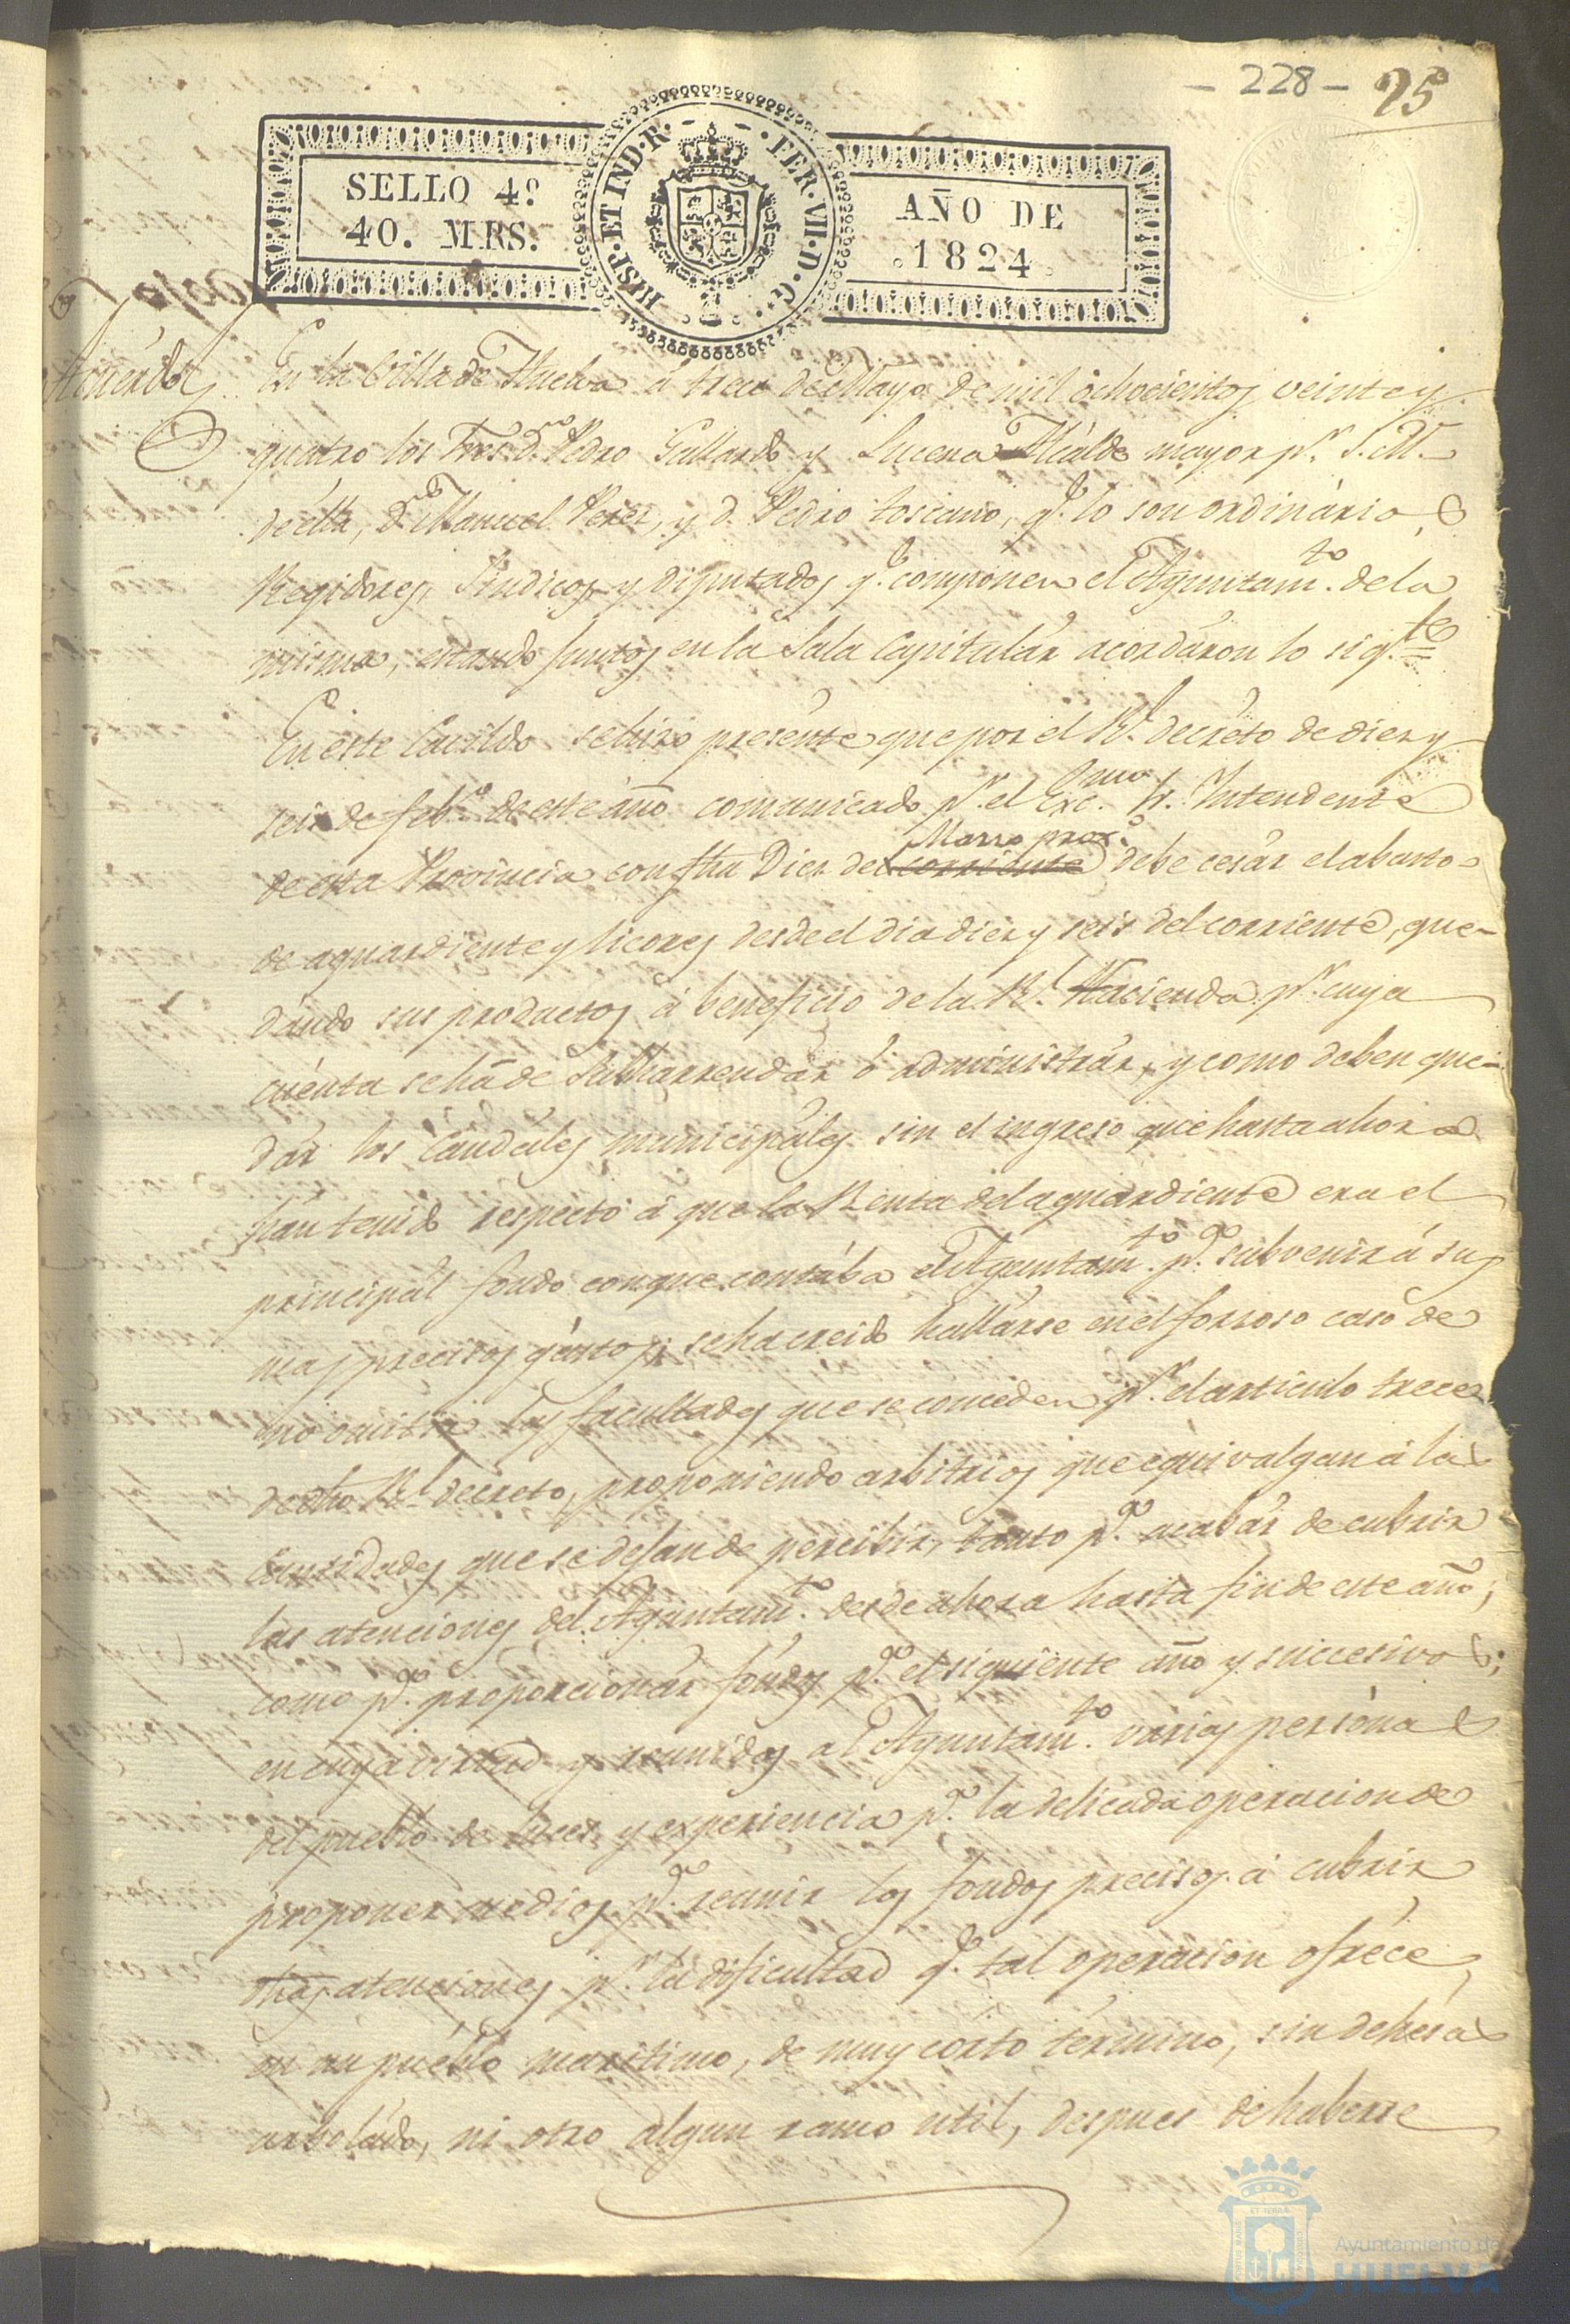 - 228 -
25
SELLO 4º
40. MRS.
HISP. ET IND. R.
FER. VII. D. G.
AÑO DE
1824
Acuerdo
En la Villa de Huelva á trece de Mayo de mil ochocientos veinte y
quatro los Sres. Dn. Pedro Gallardo y Lucena Alcalde mayor pr. S. M.
de ella, Dn. Manuel Perez, y d. Pedro toscano, qe. lo son ordinarios
Regidores, Sindicos y diputados qe. componen el Ayuntamto. de la
misma, estando juntos en la Sala Capitular acordaron lo sigte.=
En este Cavildo se hizo presente que por el Rl. decreto de diez y
seis de febo. de este año comunicado pr. el Excmo. Sr. Intendente
de esta Provincia con fha Diez de corriente Marzo proxo. debe cesar el abasto
de aguardiente y licores desde el dia diez y seis del corriente, que-
dando sus productos á beneficio de la Rl. Hacienda pr. cuya
cuenta se há de subarrendar ó administrar, y como deben que-
dar los Caudales municipales sin el ingreso que hasta ahora
han tenido respecto á que la Renta del aguardiente era el
principal fondo con que contaba el Ayuntamto. pa. subvenir á sus
mas precisos gastos; se ha creido hallarse en el forzoso caso de
no omitir las facultades que se conceden pr. el articulo trece
de dho Rl. decreto, proponiendo arbitrios que equivalgan á las
Cantidades que se dejan de percibir, tanto pa. acabar de cubrir
las atenciones del Ayuntamto. desde ahora hasta fin de este año,
como pa. proporcionar fondos pa. el siguiente año y succesivos;
en cuya virtud y reunidos al Ayuntamto. varias personas
del pueblo de luces y experiencia pa. la delicada operacion de
proponer medios pa. reunir los fondos precisos á cubrir
dhas atenciones pr. la dificultad qe. tal operacion ofrece
en un pueblo maritimo, de muy corto termino, sin dehesas
arbolado, ni otro algun ramo util, despues de haberse
Ayuntamiento de
HUELVA